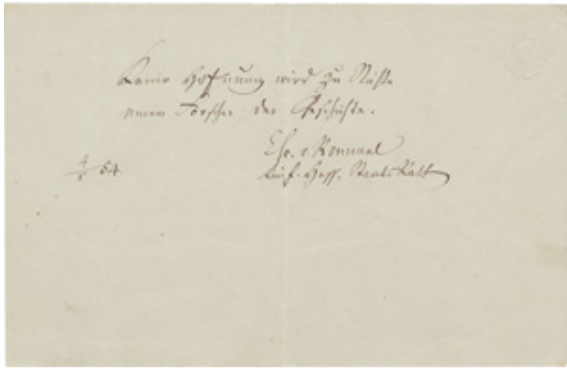 Keine Hoffnung wird zu Nichte
einem Forscher der Geschichte.
Chr. v Rommel
Kurf. Hess. Staats Rath
4/5 54